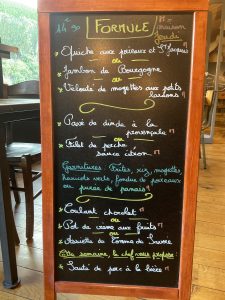 14€90
FORMULE
M = maison
jeudi
* Quiche aux poireaux et St Jacques
ou
* Jambon de Bourgogne
ou
* Velouté de mogettes aux petits
lardons
* Pavé de dinde à la
provençale M
ou
* Filet de perche
sauce citron M
Garnitures: Frites, riz, mogettes,
haricots verts, fondue de poireaux
ou purée de panais M
* Coulant chocolat M
ou
* Pot de crème aux fruits M
ou
* Assiette de Tomme de Sèvre
Cette semaine, le chef vous propose
* Sauté de porc à la bière M